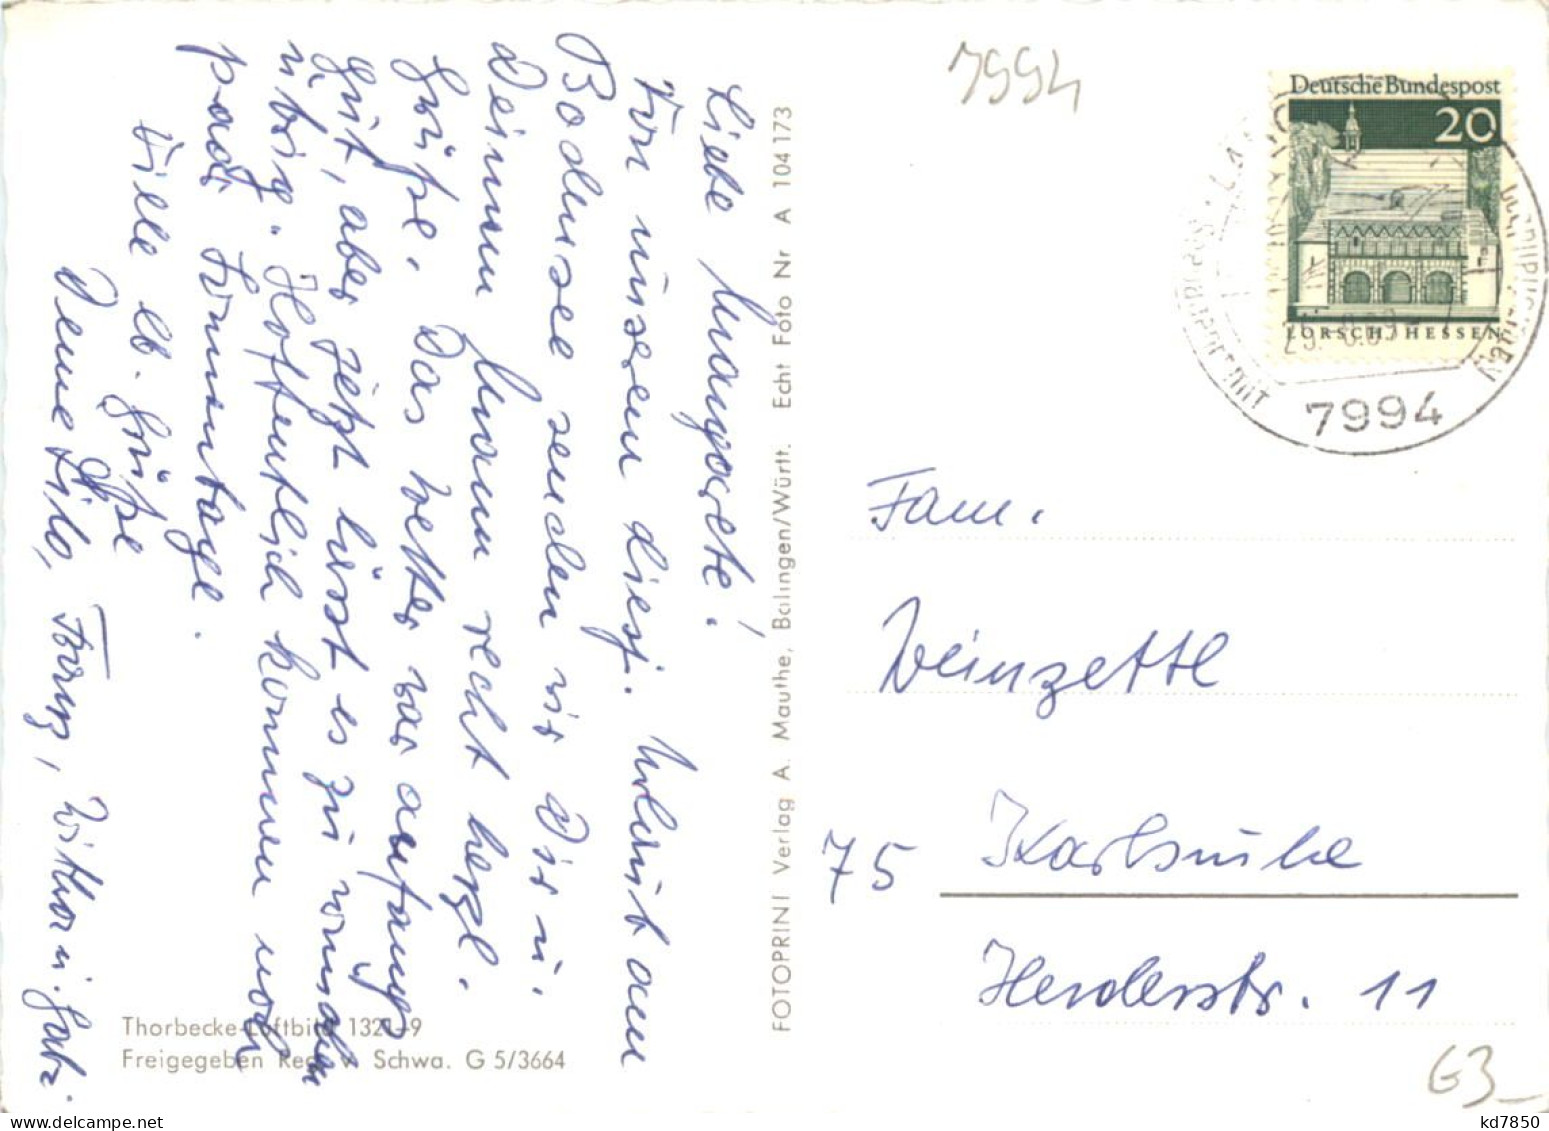 Liebe Margarete!
Von unserem diesj. Urlaub am
Bodensee senden wir Dir u.
Deinem Mann recht herzl.
Grüße. Das Wetter war anfangs
gut, aber jetzt lässt es zu wünschen
übrig. Hoffentlich kommen noch
paar Sonnentage.
Viele lb. Grüße
Deine Lilo, Franz, Witho u. Gabi.
Thorbecke-Luftbild 1321-9
Freigegeben Reg. v. Schwa. G 5/3664
FOTOPRINT Verlag A. Mauthe, Balingen/Württ. Echt Foto Nr A 104 173
7994
Deutsche Bundespost
20
LORSCH / HESSEN
7994
Fam.
Weinzettl
75 Karlsruhe
Herderstr. 11
G3-
kd7850